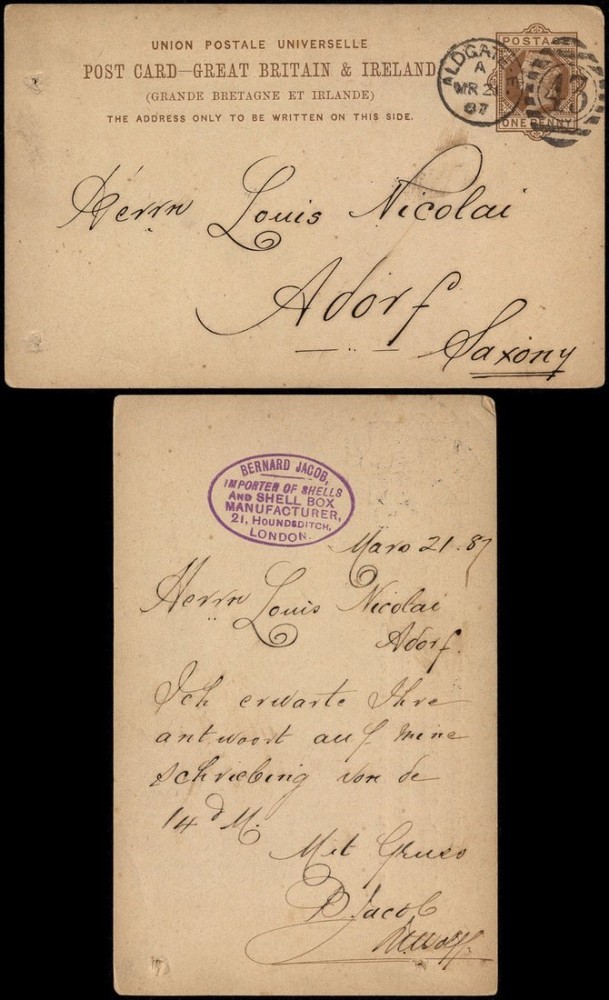 UNION POSTALE UNIVERSELLE
POST CARD—GREAT BRITAIN & IRELAND
(GRANDE BRETAGNE ET IRLANDE)
THE ADDRESS ONLY TO BE WRITTEN ON THIS SIDE.
POSTAGE
ONE PENNY
ALDGATE
A
MR 21
87
Herrn Louis Nicolai
Adorf
Saxony
BERNARD JACOB,
IMPORTER OF SHELLS
AND SHELL BOX
MANUFACTURER,
21, HOUNDSDITCH,
LONDON.
Mars 21. 87
Herrn Louis Nicolai
Adorf.
Ich erwarte Ihre
antwort auf meine
schriebing von de
14 d M.
Mit Gruss
B Jacob